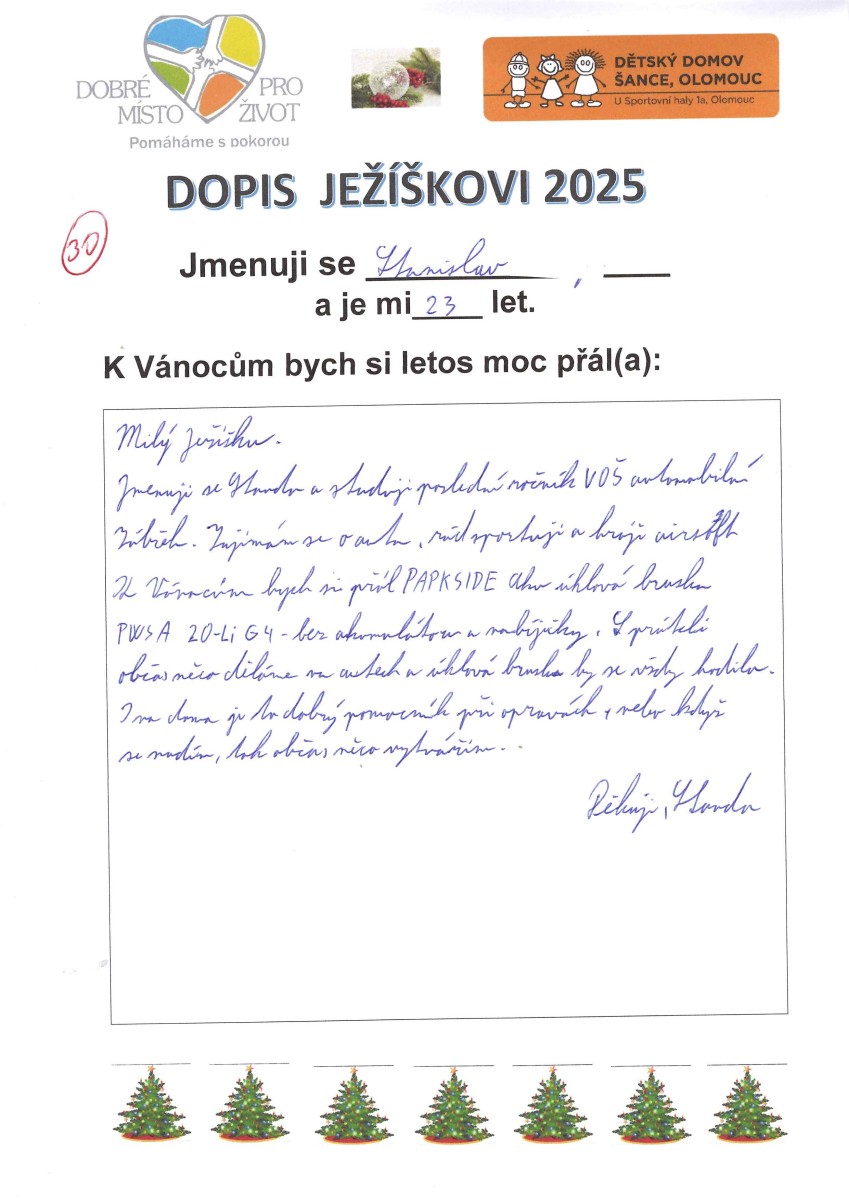 DOBRÉ PRO
MÍSTO ŽIVOT
Pomáháme s pokorou
DĚTSKÝ DOMOV
ŠANCE, OLOMOUC
U Sportovní haly 1a, Olomouc
DOPIS JEŽÍŠKOVI 2025
30
Jmenuji se Stanislav ,
a je mi 23 let.
K Vánocům bych si letos moc přál(a):
Milý Ježíšku.
Jmenuji se Standa a studuji poslední ročník VOŠ automobilní
Zábřeh. Zajímám se o auta, rád sportuji a hraji airsoft
K Vánocům bych si přál PAPKSIDE Aku úhlová bruska
PWSA 20-Li G4 - bez akumulátoru a nabíječky. S přáteli
občas něco děláme na autech a úhlová bruska by se vždy hodila.
I na doma je to dobrý pomocník při opravách, nebo když
se nudím, tak občas něco vytvářím.
Děkuji, Standa